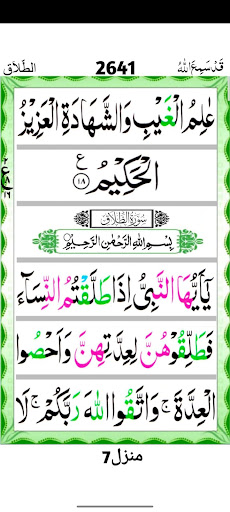 الطلاق 2641 قَدْ سَمِعَ اللهُ
عٰلِمُ الْغَيْبِ وَالشَّهَادَةِ الْعَزِيْزُ
الْحَكِيْمُ ع ١٨
سُوْرَةُ الطَّلَاقِ
بِسْمِ اللهِ الرَّحْمٰنِ الرَّحِيْمِ
يٰٓاَيُّهَا النَّبِيُّ اِذَا طَلَّقْتُمُ النِّسَآءَ
فَطَلِّقُوْهُنَّ لِعِدَّتِهِنَّ وَاَحْصُوا
الْعِدَّةَ ۚ وَاتَّقُوا اللهَ رَبَّكُمْ ۚ لَا
منزل 7